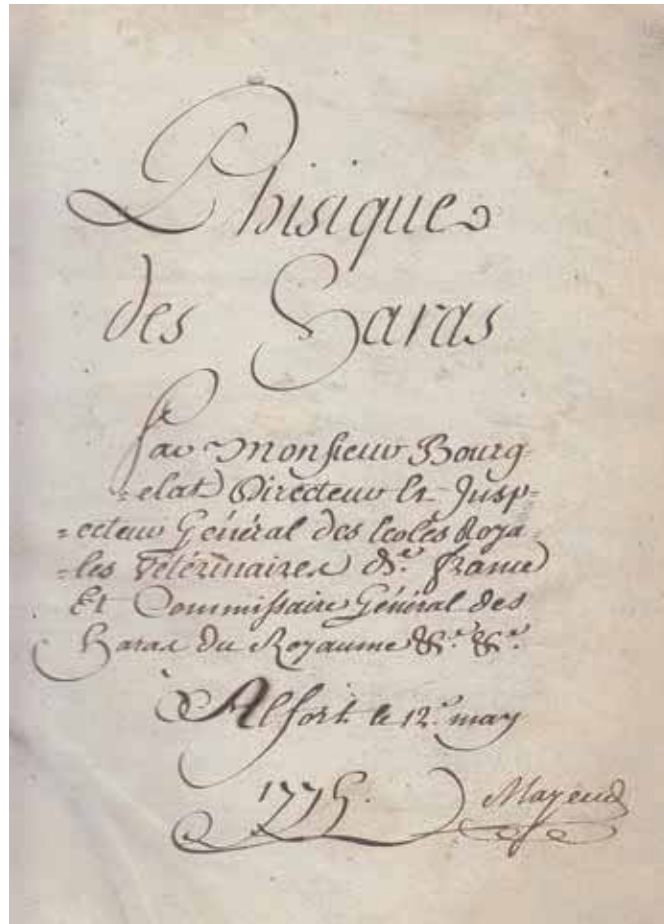 Phisique
des haras
Par Monsieur Bourg-
-elat Directeur Et Insp-
-ecteur Général des écoles Roya-
-les vétérinaires de france
Et Commissaire Général des
haras du Royaume &c. &c.
Alfort le 12e may
1775.